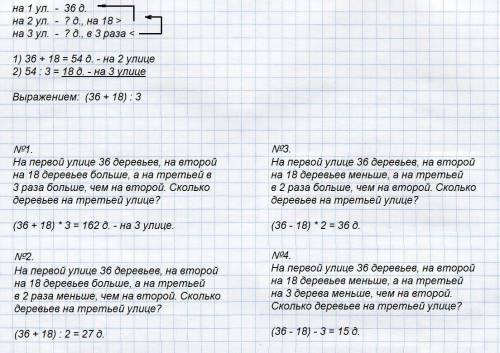 на 1 ул. - 36 д.
на 2 ул. - ? д., на 18 >
на 3 ул. - ? д., в 3 раза <
1) 36 + 18 = 54 д. - на 2 улице
2) 54 : 3 = 18 д. - на 3 улице
Выражением: (36 + 18) : 3
№1.
На первой улице 36 деревьев, на второй
на 18 деревьев больше, а на третьей в
3 раза больше, чем на второй. Сколько
деревьев на третьей улице?
(36 + 18) * 3 = 162 д. - на 3 улице.
№2.
На первой улице 36 деревьев, на второй
на 18 деревьев больше, а на третьей
в 2 раза меньше, чем на второй. Сколько
деревьев на третьей улице?
(36 + 18) : 2 = 27 д.
№3.
На первой улице 36 деревьев, на второй
на 18 деревьев меньше, а на третьей
в 2 раза больше, чем на второй. Сколько
деревьев на третьей улице?
(36 - 18) * 2 = 36 д.
№4.
На первой улице 36 деревьев, на второй
на 18 деревьев меньше, а на третьей
на 3 дерева меньше, чем на второй.
Сколько деревьев на третьей улице?
(36 - 18) - 3 = 15 д.